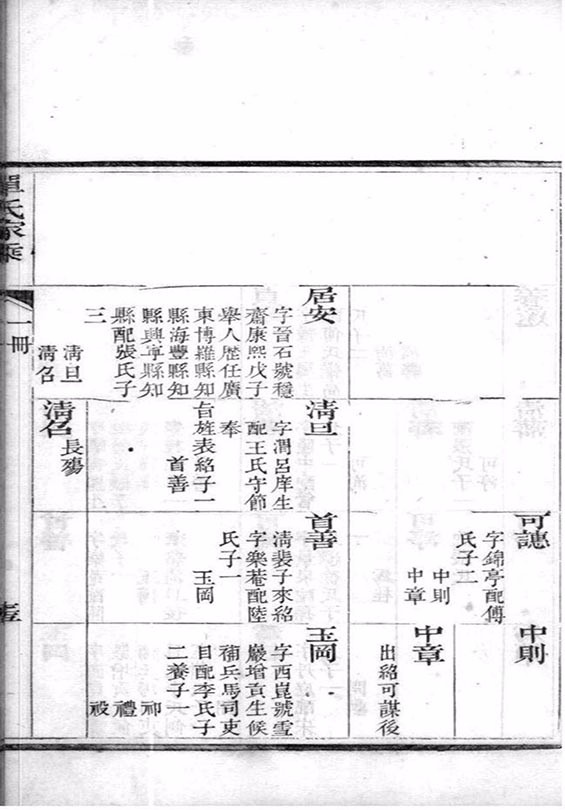 單氏家乘
一冊
可讓
字錦亭配傅
氏子二
中則
中章
中則
中章
出紹可謀後
居安
字晉石號穩
齋康熙戊子
舉人歷任廣
東博羅縣知
縣海豐縣知
縣興寧縣知
縣配張氏子
三
淸旦
淸名
淸旦
字潤呂庠生
配王氏守節
奉
旨旌表紹子一
首善
首善
淸裴子來紹
字樂菴配陸
氏子一
玉岡
玉岡
字西崑號雪
巖增貢生候
補兵馬司吏
目配李氏子
二養子一
禮
淸名
長殤